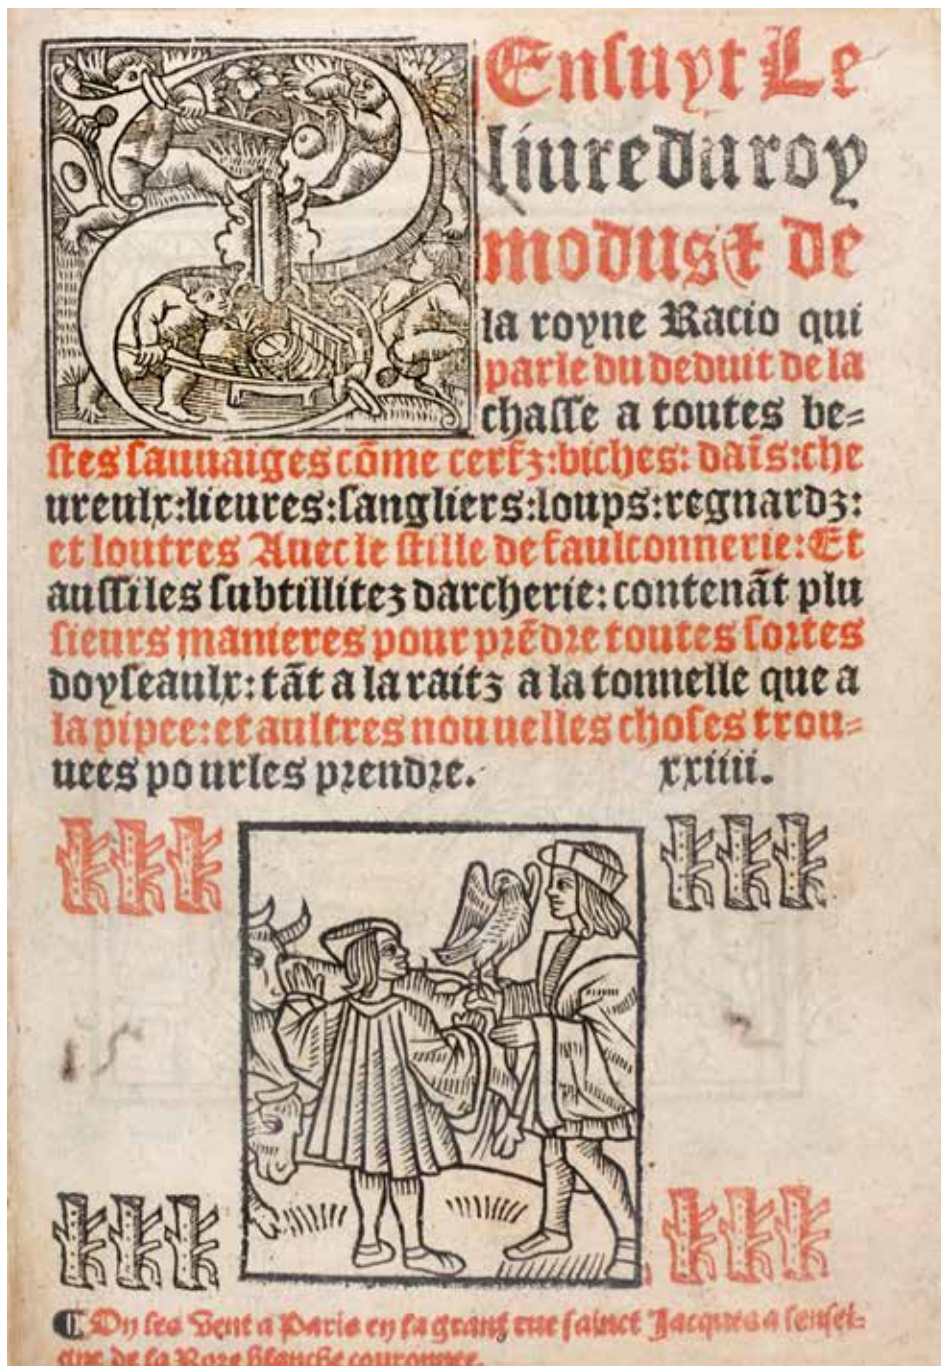 S Ensuyt Le
liure du roy
modus & de
la royne Racio qui
parle du deduit de la
chasse a toutes be=
stes sauuaiges cõme cerfz: biches: daĩs: che
ureulx: lieures: sangliers: loups: regnardz:
et loutres Auec le stille de faulconnerie: Et
aussi les subtillitez darcherie: contenãt plu
sieurs manieres pour prẽdre toutes sortes
doyseaulx: tãt a la raitz a la tonnelle que a
la pipee: et aultres nouuelles choses trou=
uees pour les prendre. xxiiii.
On les Vent a Paris en la grant rue sainct Jacques a lensei=
gne de la Roze blanche couronnee.